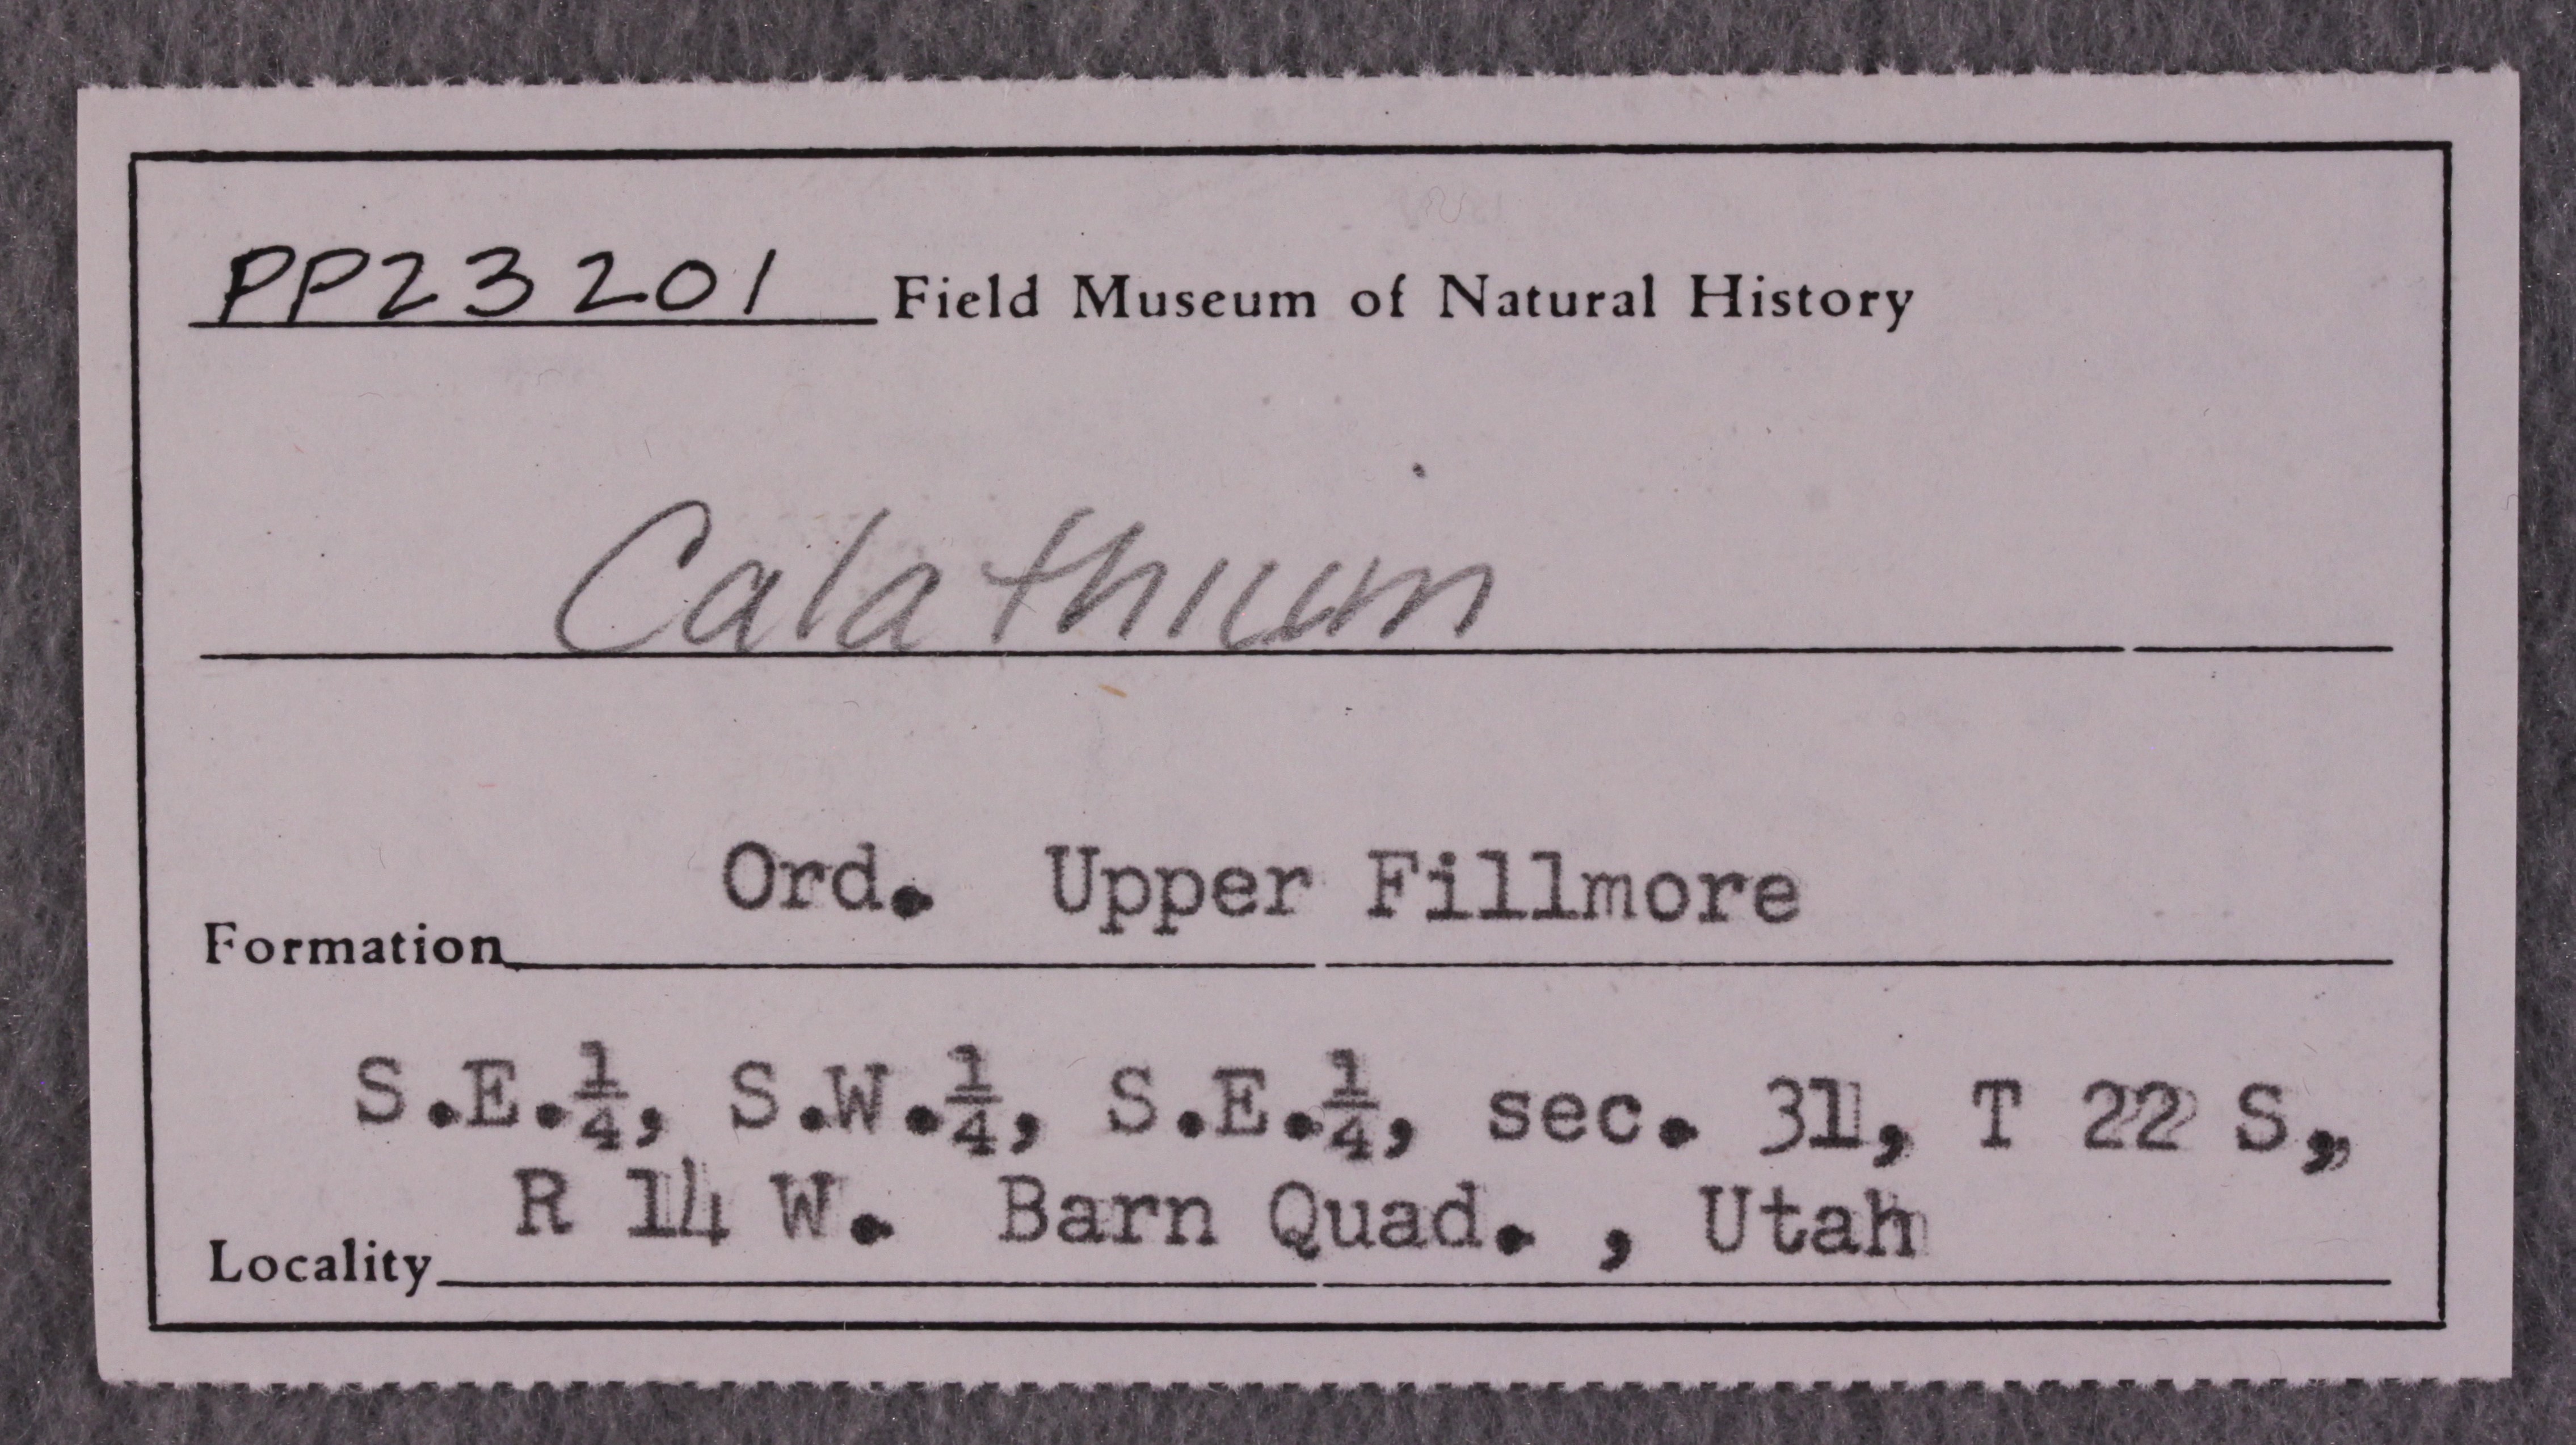 PP23201 Field Museum of Natural History
Calathium
Ord. Upper Fillmore
Formation
S.E.¼, S.W.¼, S.E.¼, sec. 31, T 22 S,
R 14 W. Barn Quad. , Utah
Locality